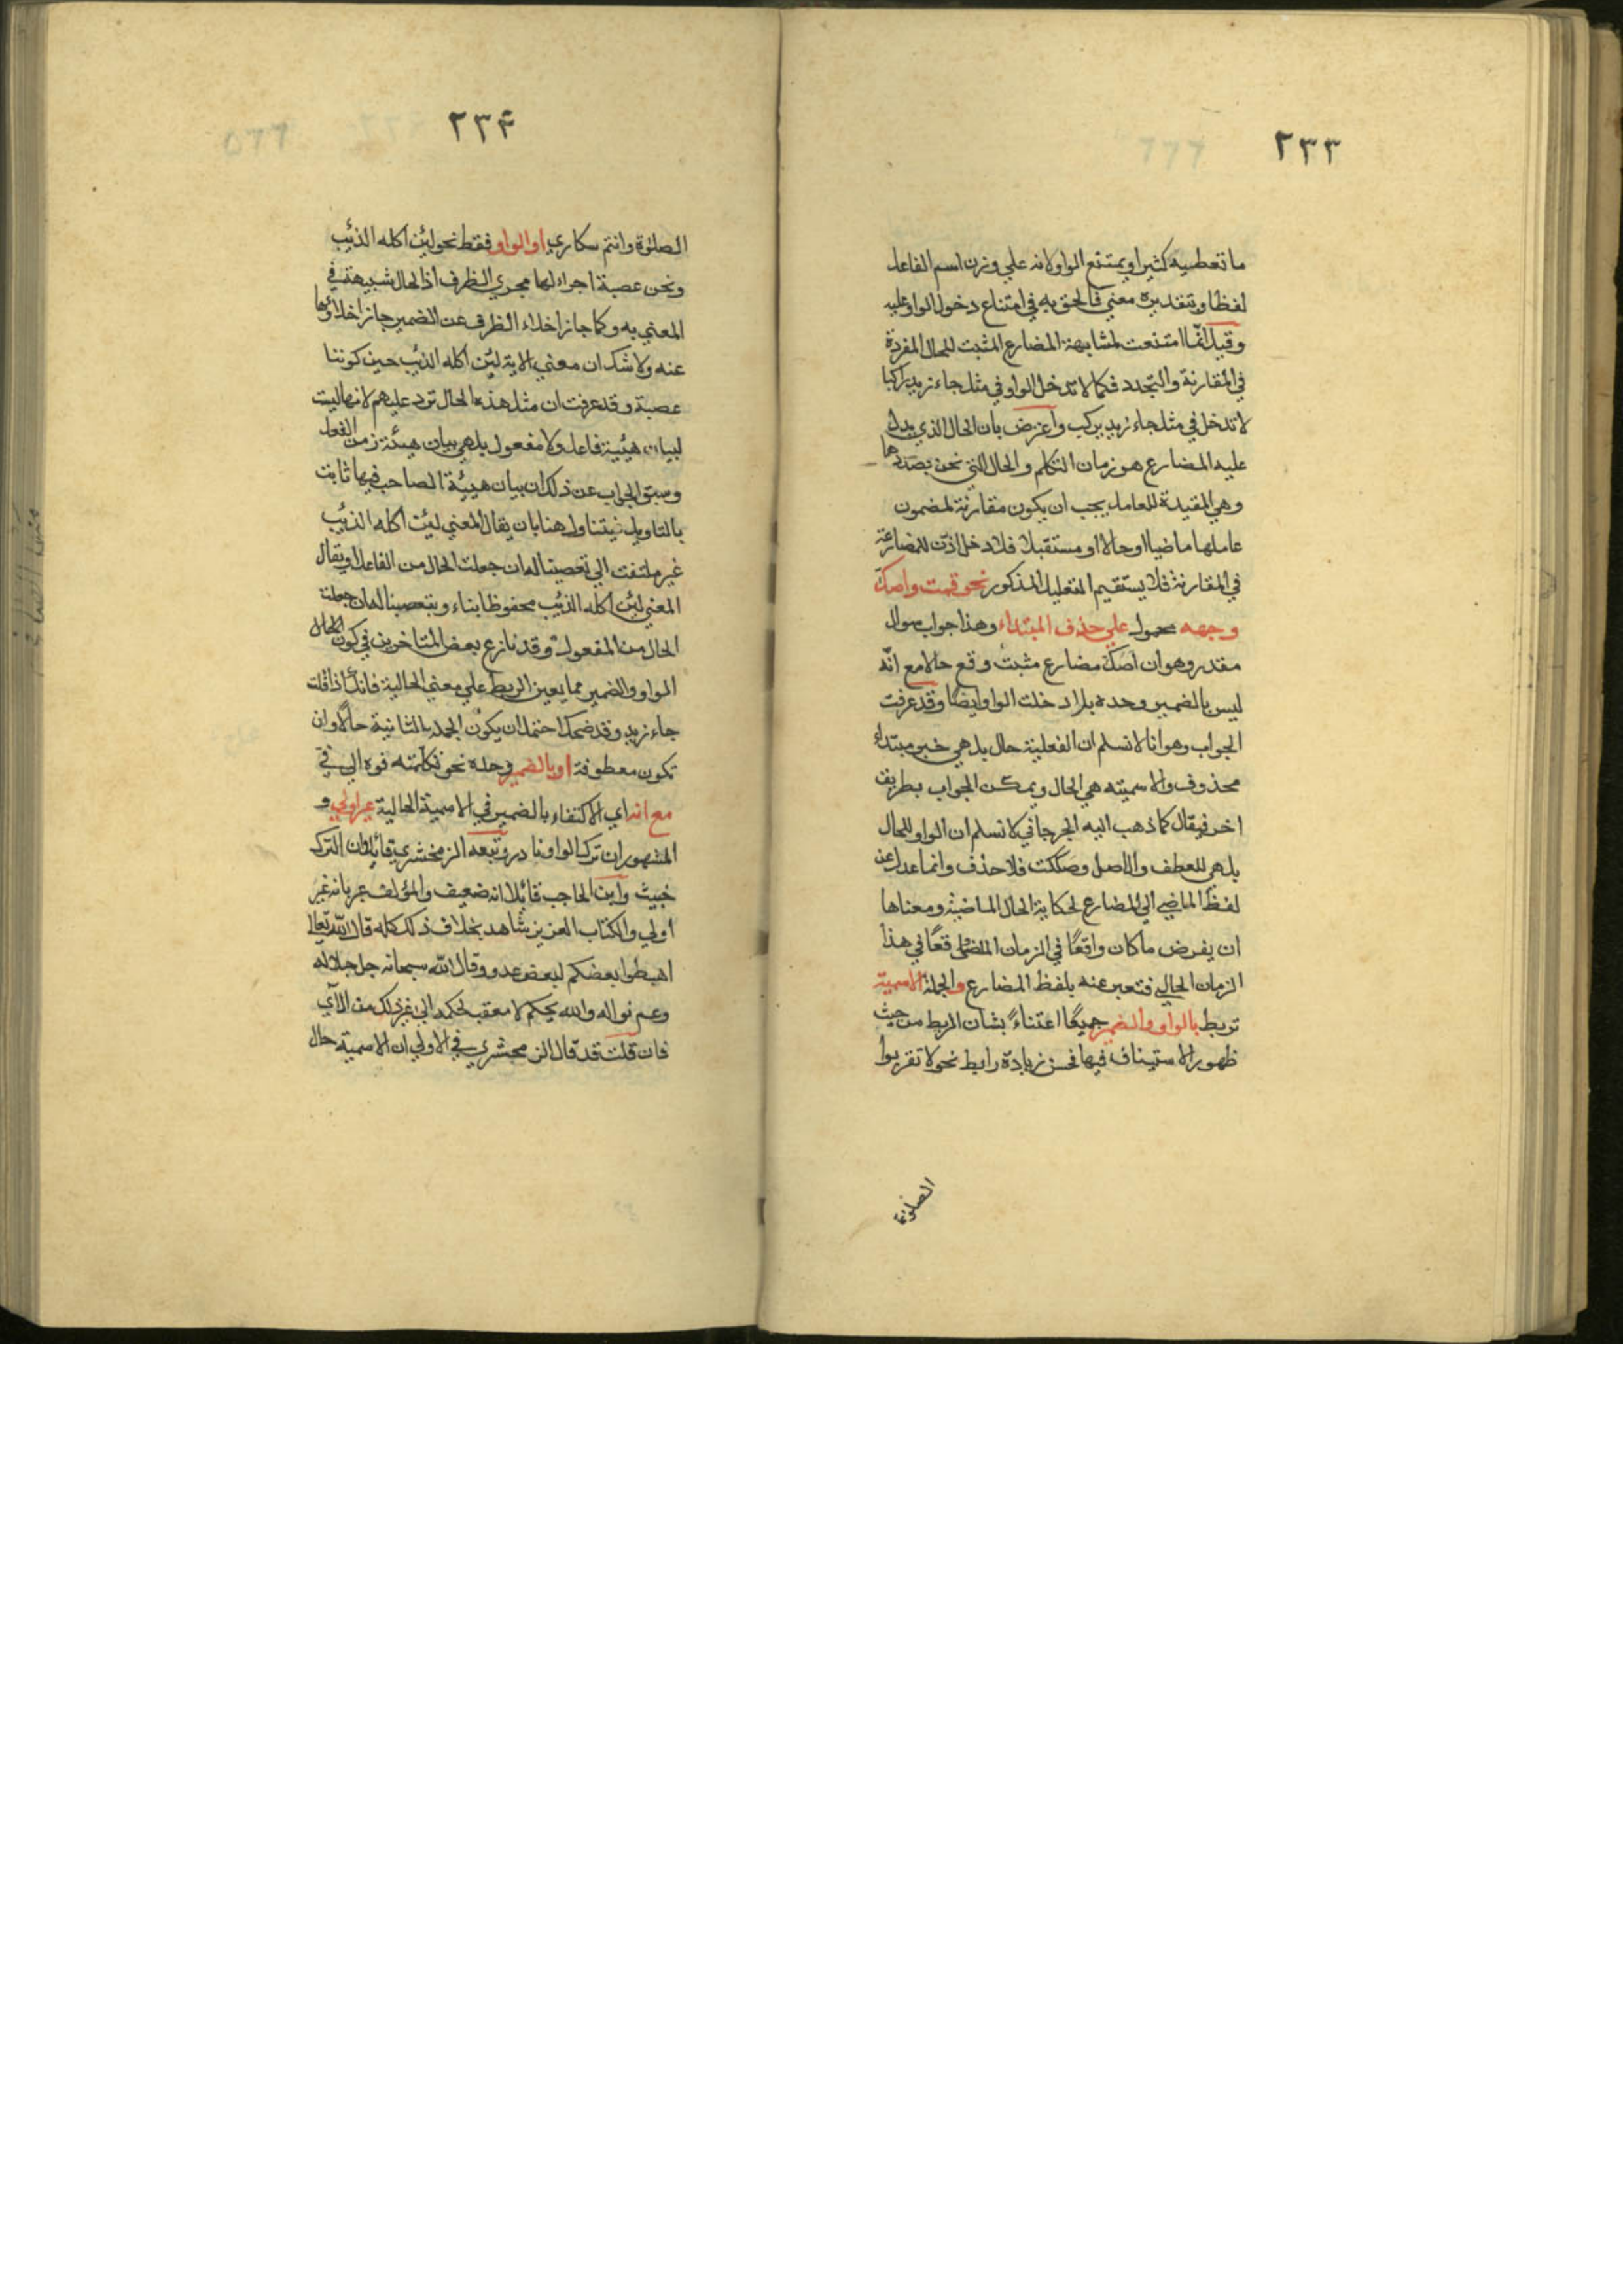 ٢٣٣
ما تعطيه كثيرا ويمتنع الواو لانه علي وزن اسم الفاعل
لفظا وبتقديره معني فالحق به في امتناع دخول الواو عليه
وقيل انما امتنعت لمشابهة المضارع المثبت للحال المفردة
في المقارنة والتجدد فكما لا تدخل الواو في مثل جاء زيد راكبا
لا تدخل في مثل جاء زيد يركب واعترض بان الحال الذي يدل
عليه المضارع هو زمان التكلم والحال التي نحن بصددها
وهي المقيدة للعامل يجب ان يكون مقارنة لمضمون
عاملها ماضيا او حالا او مستقبلا فلا دخل اذن للمضارعة
في المقارنة فلا يستقيم التعليل المذكور نحو قمت واصكّ
وجهه محمول علي حذف المبتداء وهذا جواب سوال
مقدر وهو ان اصكّ مضارع مثبت وقع حالا مع انّه
ليس بالضمير وحده بل ادخلت الواو ايضا وقد عرفت
الجواب وهو انا لا نسلم ان الفعلية حال بل هي خبر مبتداء
محذوف والاسميته هي الحال ويمكن الجواب بطريق
اخر فيقال كما ذهب اليه الجرجاني لا نسلم ان الواو للحال
بل هي للعطف والاصل وصككت فلا حذف وانما عدل عن
لفظ الماضي الي المضارع لحكاية الحال الماضية ومعناها
ان يفرض ما كان واقعًا في الزمان الماضي واقعًا في هذا
الزمان الحالي فتعبر عنه بلفظ المضارع والجملة الاسمية
تربط بالواو والضمير جميعًا اعتناءً بشان الربط من حيث
ظهور الاستيناف فيها فحسن زيادة رابط نحو لا تقربوا
الصلوة
٢٣۴
الصلوة وانتم سكاري او الواو فقط نحو لئن اكله الذئب
ونحن عصبة اجراء لها مجري الظرف اذ الحال شبيهة في
المعني به وكما جاز اخلاء الظرف عن الضمير جاز اخلاؤها
عنه ولا شك ان معني الاية لئن اكله الذئب حين كوننا
عصبة وقد عرفت ان مثل هذه الحال ترد عليهم لانها ليست
لبيان هيئة فاعل ولا مفعول بل هي بيان هيئة زمن الفعل
وسبق الجواب عن ذلك ان بيان هيئة الصاحب فيها ثابت
بالتاويل فيتناول هنا بان يقال المعني لئن اكله الذئب
غير ملتفت الي تعصبنا له ان جعلت الحال من الفاعل او يقال
المعني لئن اكله الذئب محفوظا بناء وبتعصبنا له ان جعلت
الحال من المفعول وقد نازع بعض المتاخرين في كون الحال
الواو والضمير مما يعين الربط علي معني الحالية فانك اذا قلت
جاء زيد وقد ضحك احتمل ان يكون الجملة الثانية حالًا وان
تكون معطوفة او بالضمير وحده نحو فكلمته فوه الي في
مع انه اي الاكتفاء بالضمير في الاسمية الحالية غير اولي و
المشهور ان ترك الواو نادر وتبعه الزمخشري قائلا وان الترك
خبيث وابن الحاجب قائلا انه ضعيف والمؤلف عبر بانه غير
اولي والكتاب العزيز شاهد بخلاف ذلك كله قال الله تعالي
اهبطوا بعضكم لبعض عدو وقال الله سبحانه جل جلاله
وعم نواله والله يحكم لا معقب لحكمه الي غير ذلك من الآي
فان قلت قد قال الزمخشري في الاولي ان الاسمية حال